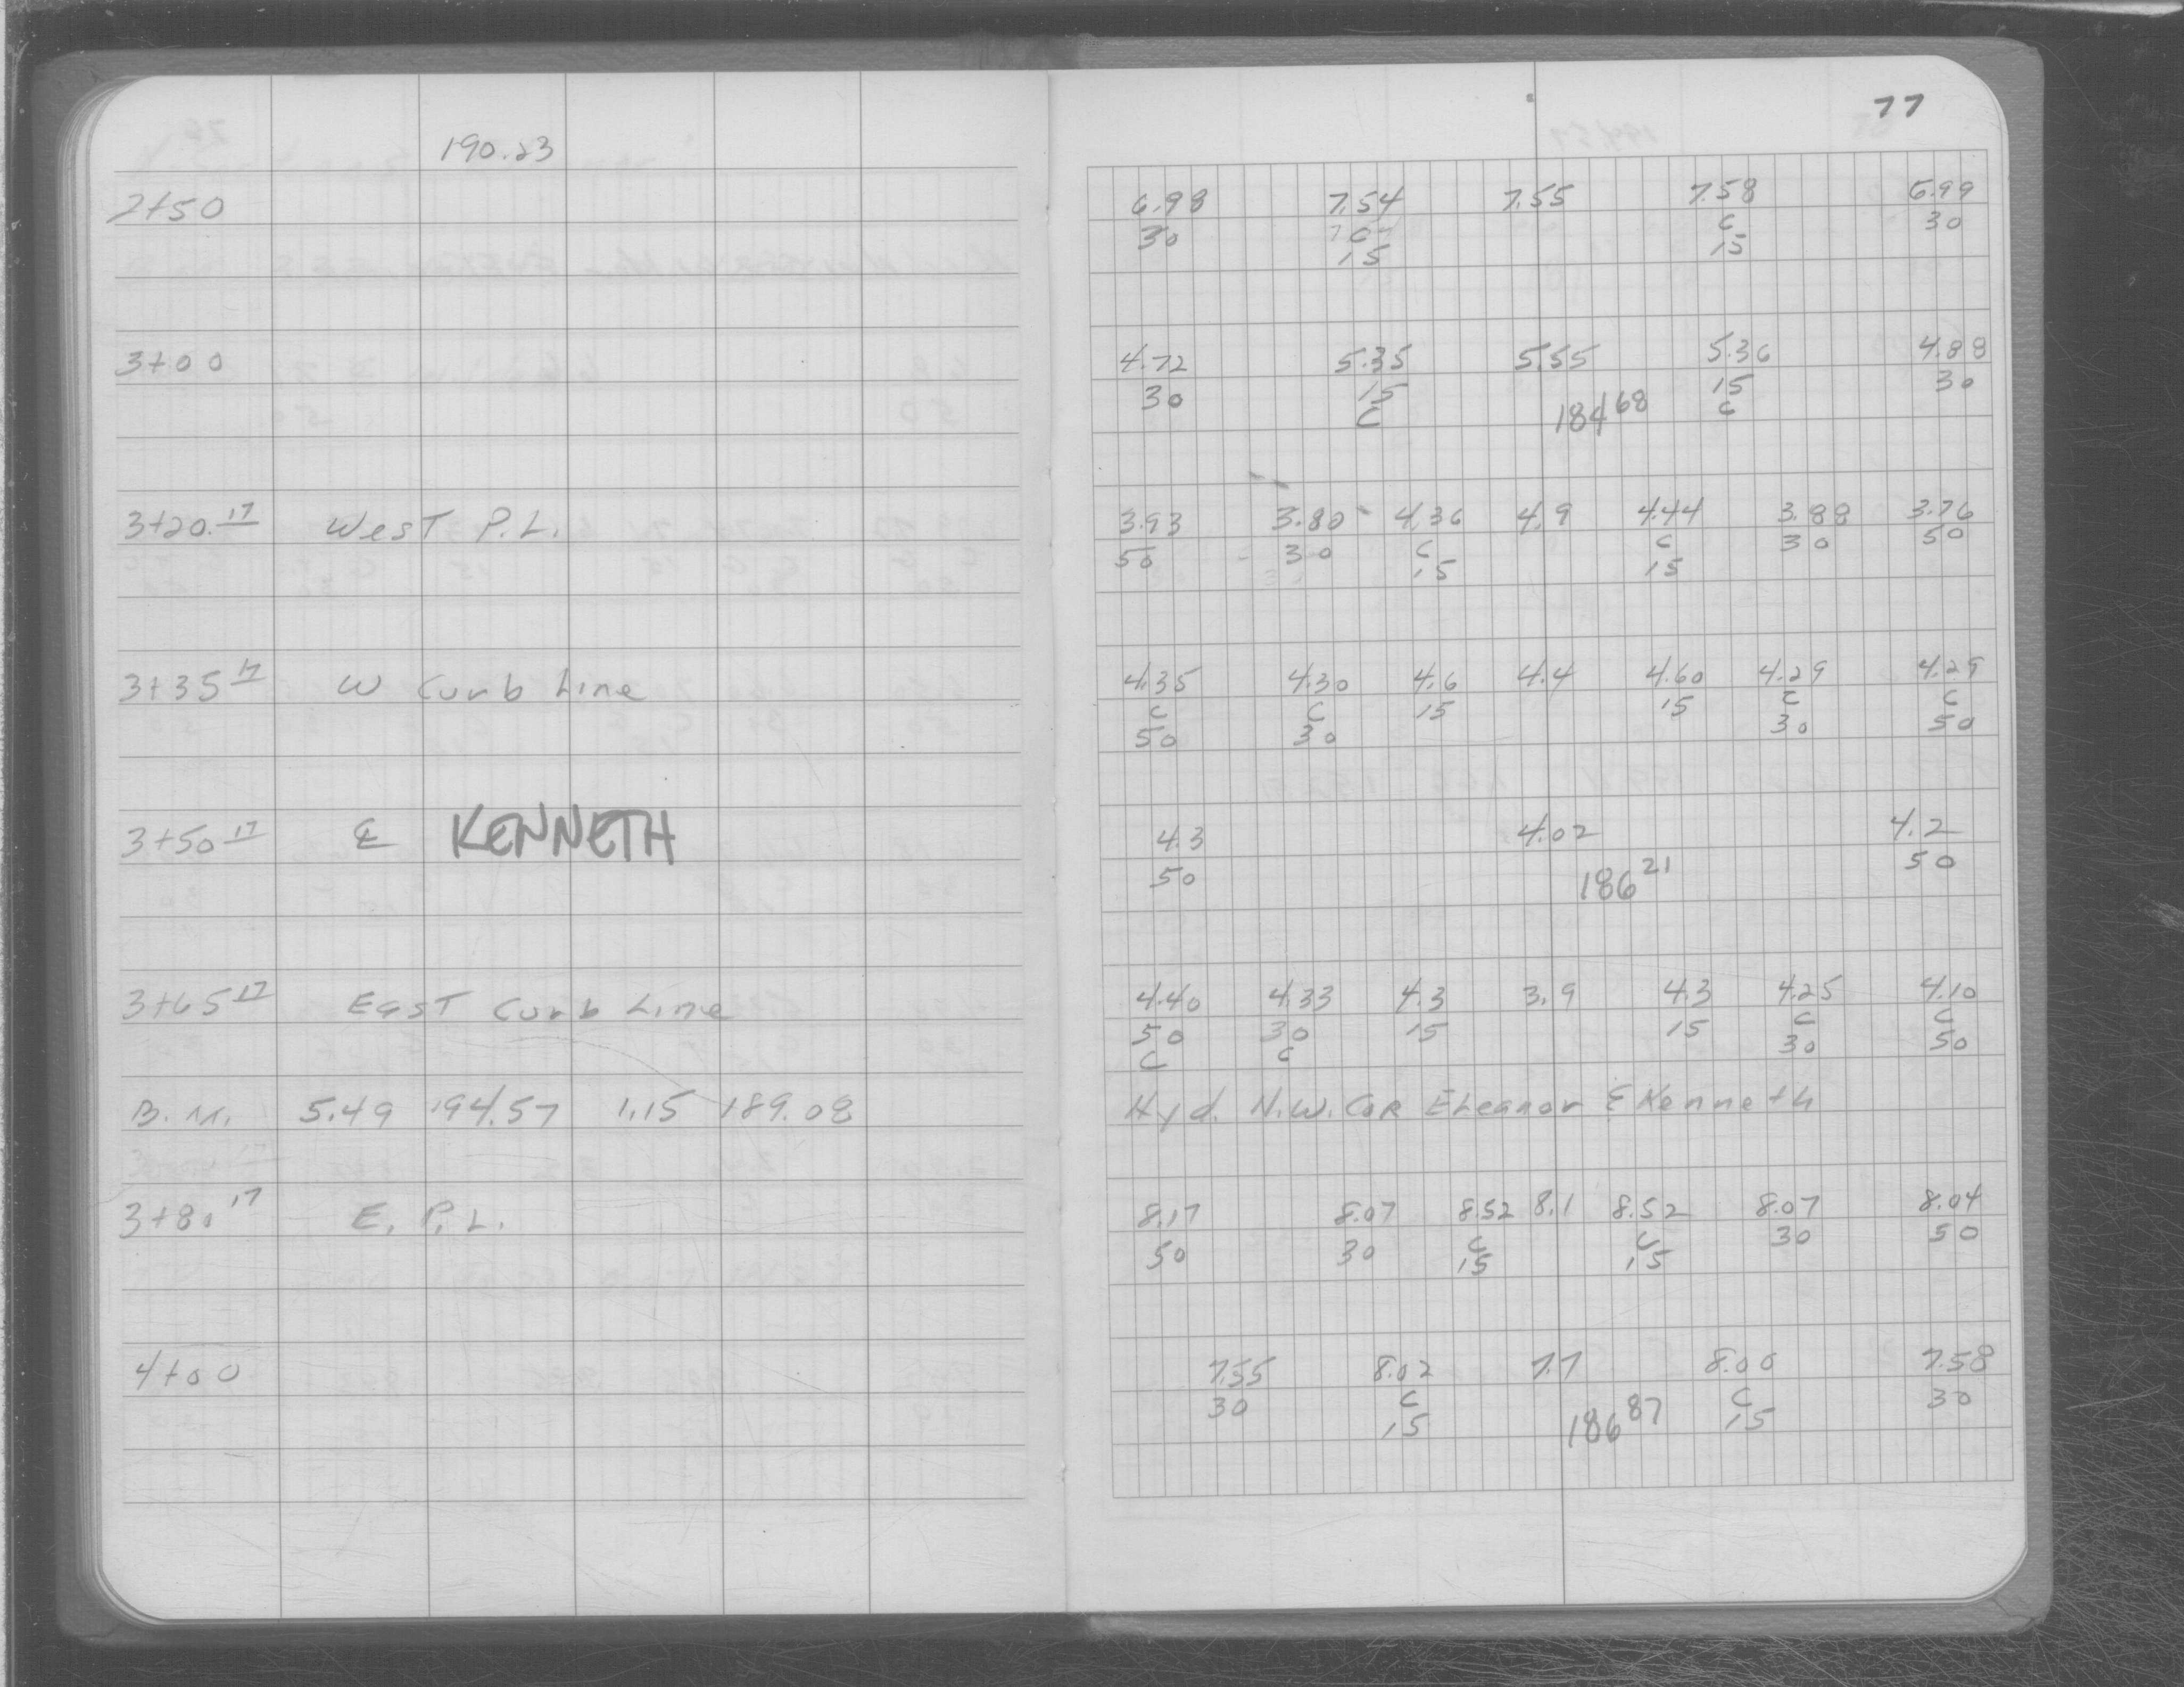 77
190.23
2+50 6.98 7.54 7.55 7.58 6.99
30 C C 30
15 15
3+00 4.72 5.35 5.55 5.36 4.88
30 15 15 30
C 184 68 C
3+20.17 West P.L. 3.93 3.80 4.36 4.9 4.44 3.88 3.76
50 30 C C 30 50
15 15
3+35 17 W Curb Line 4.35 4.30 4.6 4.4 4.60 4.29 4.29
C C 15 15 C C
50 30 30 50
3+50 17 ℄ KENNETH 4.3 4.02 4.2
50 186 21 50
3+65 17 East Curb Line 4.40 4.33 4.3 3.9 4.3 4.25 4.10
50 30 15 15 C C
C C 30 50
B.M. 5.49 194.57 1.15 189.08 Hyd. N.W. Cor Eleanor & Kenneth
3+80 17 E. P.L. 8.17 8.07 8.52 8.1 8.52 8.07 8.04
50 30 C C 30 50
15 15
4+00 7.55 8.02 7.7 8.00 7.58
30 C C 30
15 186 87 15